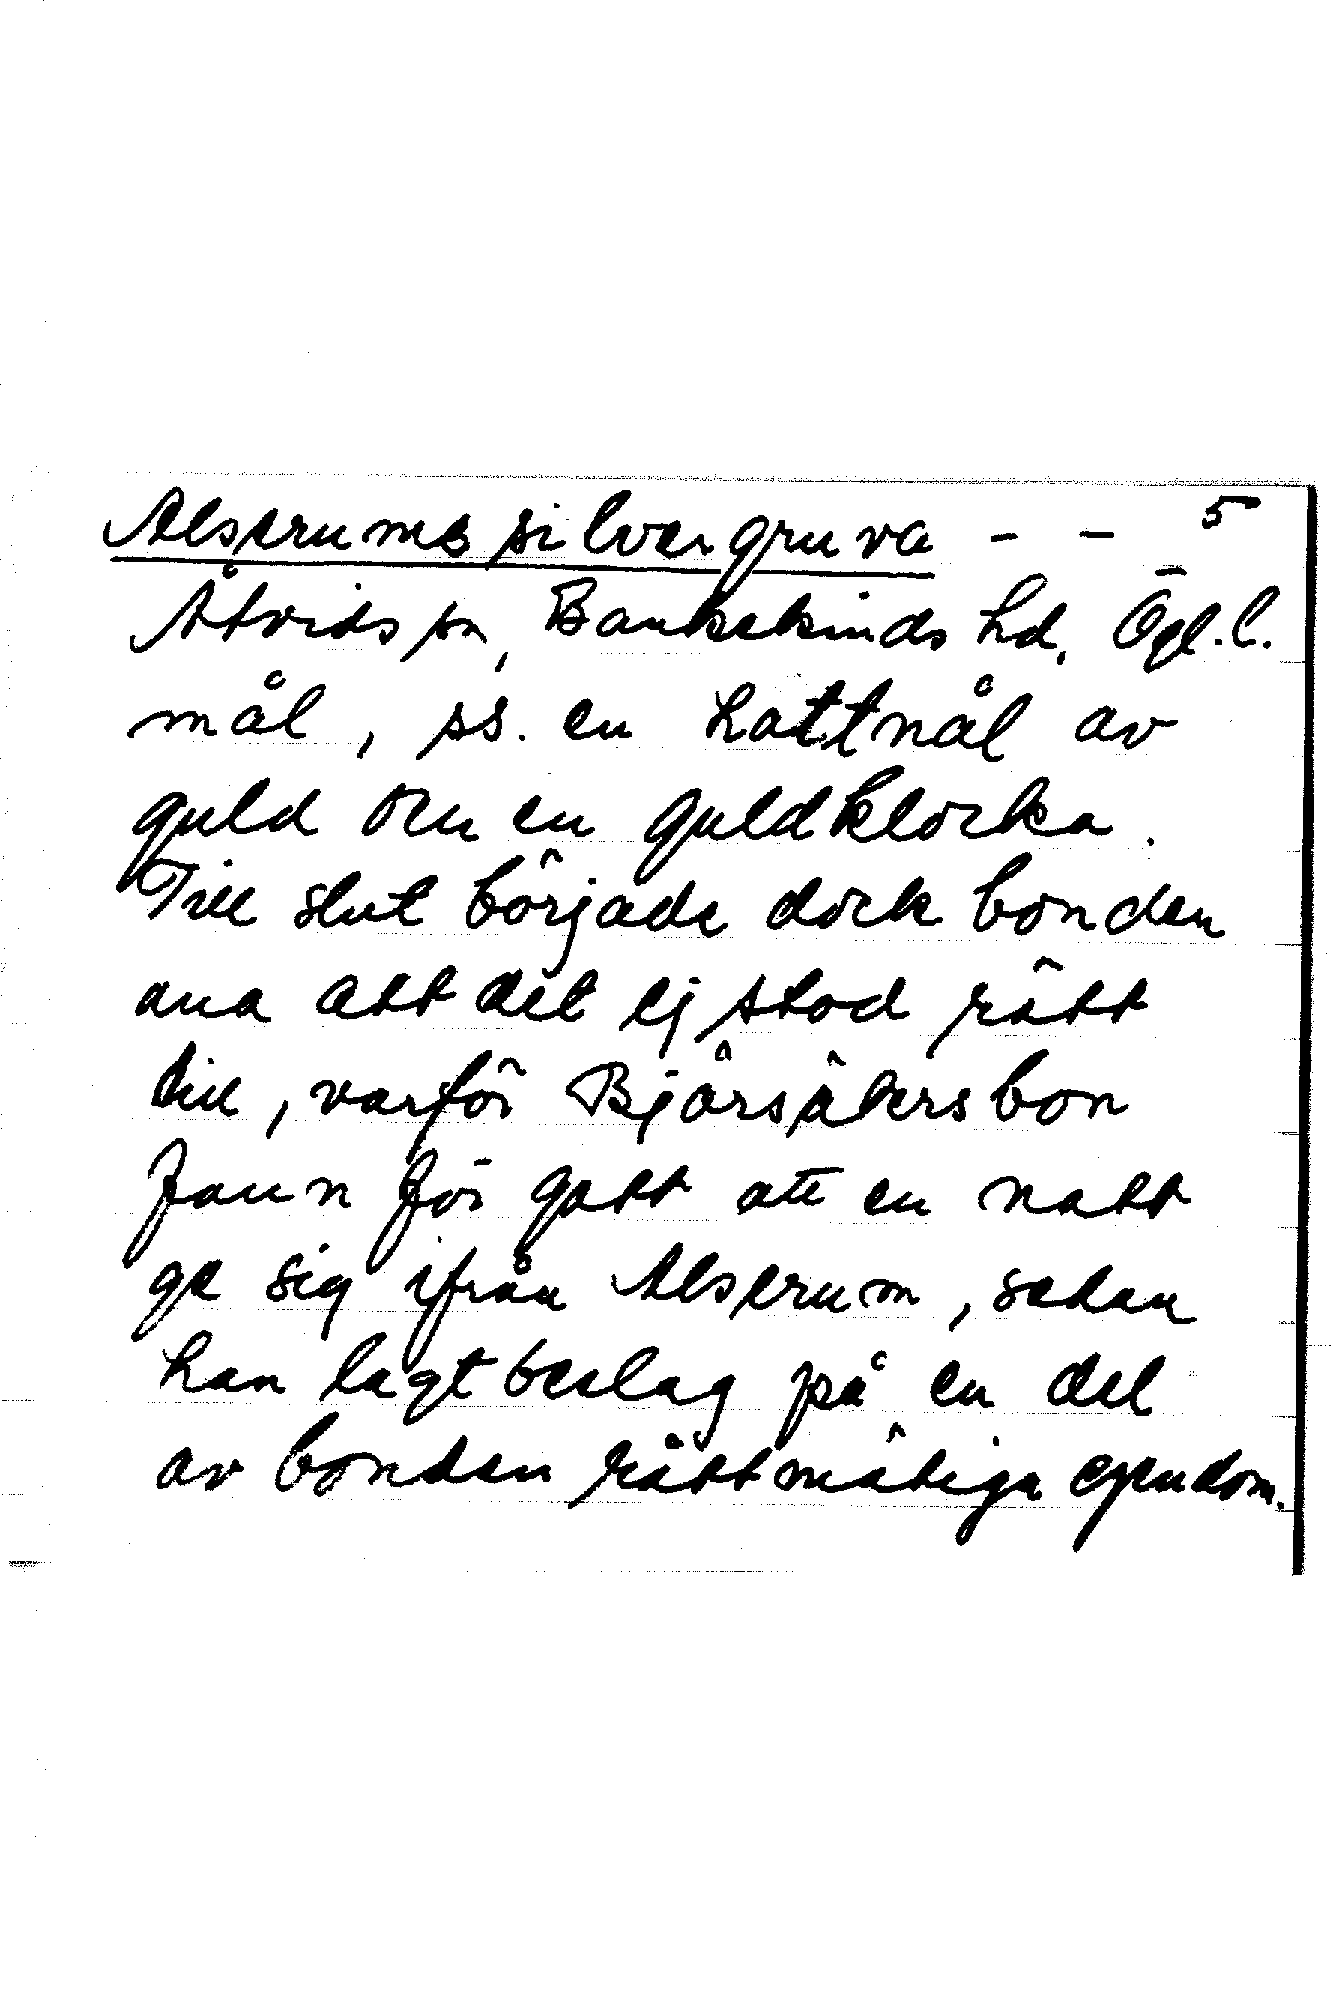 Alserums silvergruva - - 5
Åtvids sn, Bankekinds hd, Ögl. l.
mål, ss. en hattnål av
guld och en guldklocka.
Till slut började dock bonden
ana att det ej stod rätt
till, varför Bjärsäkersbon
fann för gott att en natt
ge sig ifrån Alserum, sedan
han lagt beslag på en del
av bonden rättmätiga egendom.